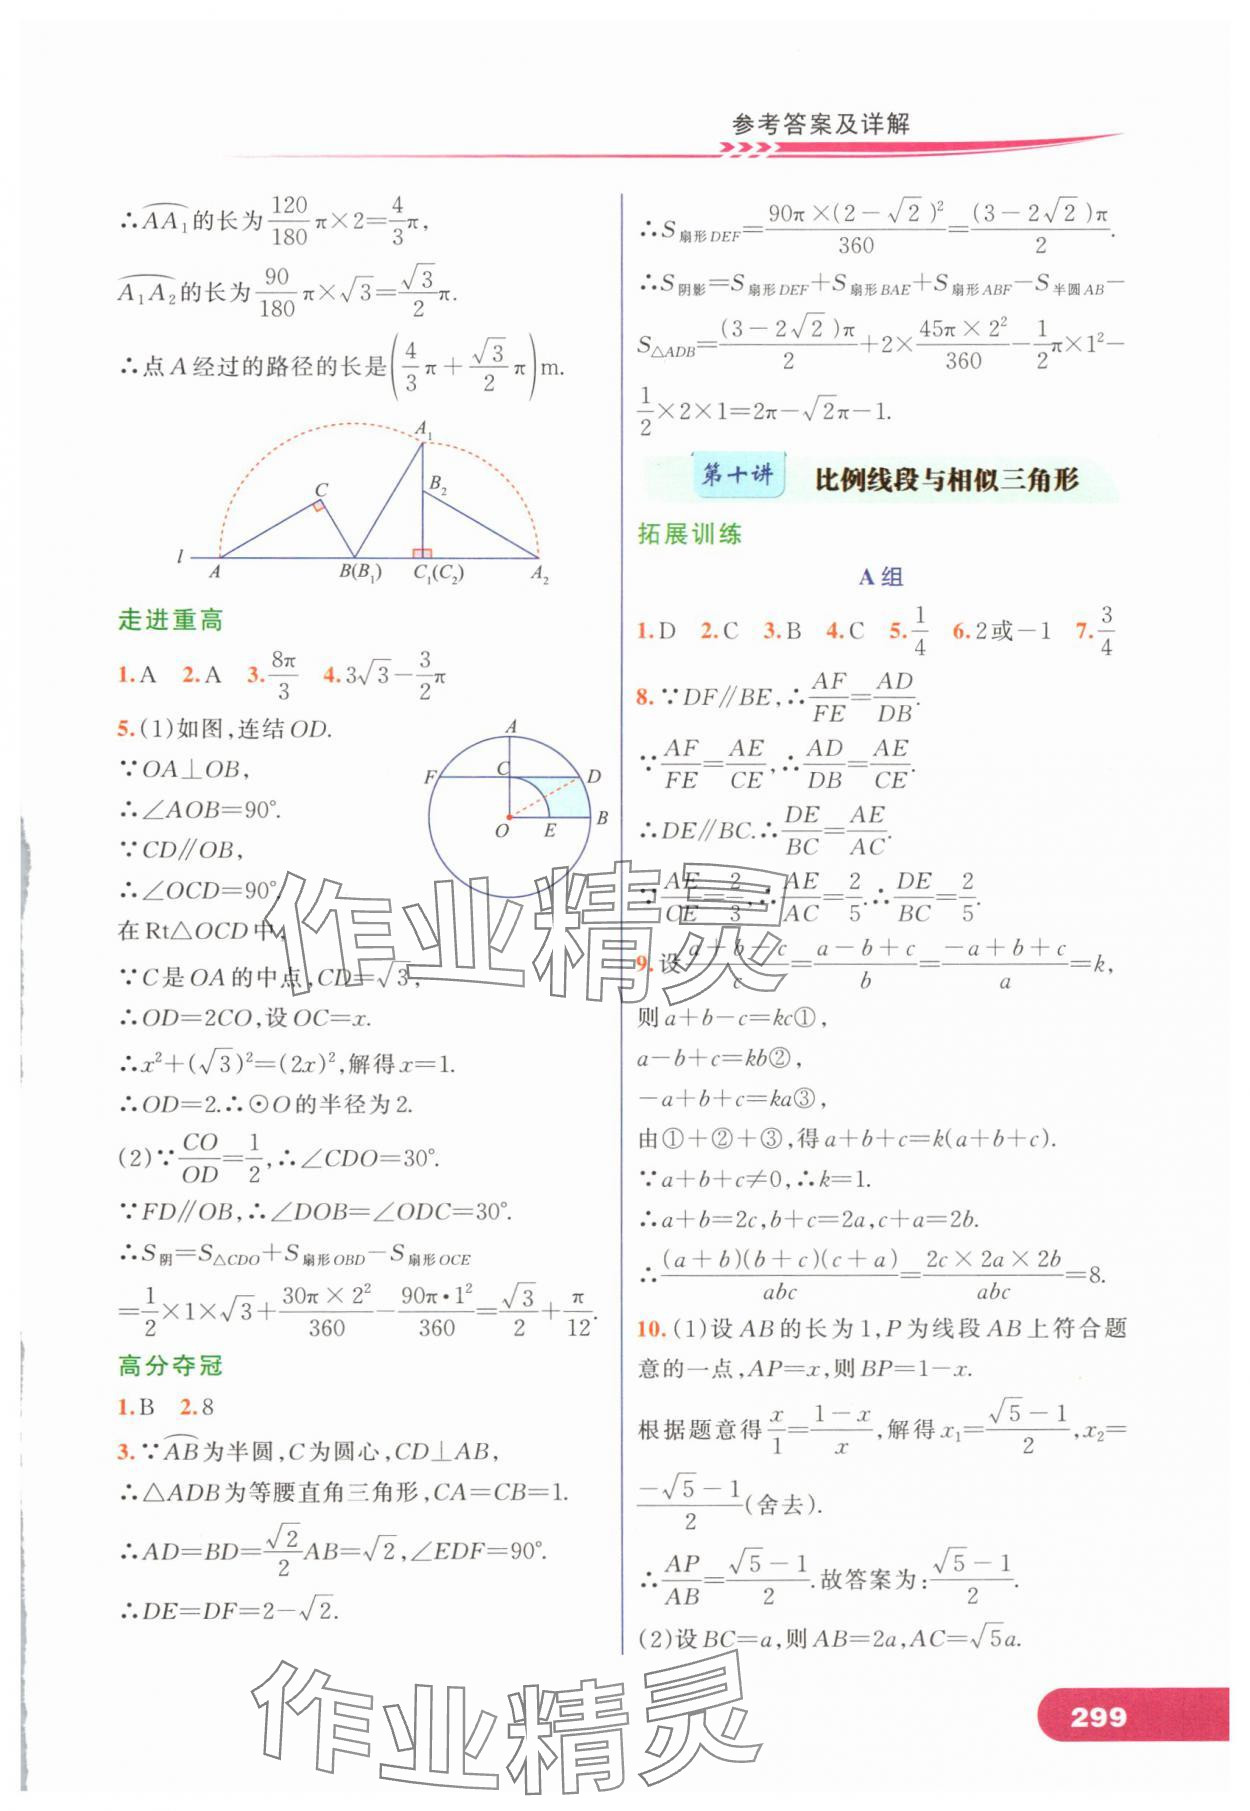 参考答案及详解
∴AA₁的长为120/180π×2=4/3π,
A₁A₂的长为90/180π×√3=√3/2π.
∴点A经过的路径的长是(4/3π+√3/2π)m.
A₁
C
B₂
l
A
B(B₁)
C₁(C₂)
A₂
走进重高
1.A 2.A 3.8π/3 4.3√3-3/2π
5.(1)如图,连结OD.
∵OA⊥OB,
∴∠AOB=90°.
∵CD∥OB,
∴∠OCD=90°
在Rt△OCD中,
∵C是OA的中点,CD=√3,
∴OD=2CO,设OC=x.
∴x²+(√3)²=(2x)²,解得x=1.
∴OD=2.∴⊙O的半径为2.
A
F
C
D
O
E
B
(2)∵CO/OD=1/2,∴∠CDO=30°.
∵FD∥OB,∴∠DOB=∠ODC=30°.
∴S阴=S△CDO+S扇形OBD-S扇形OCE
=1/2×1×√3+30π×2²/360-90π•1²/360=√3/2+π/12.
高分夺冠
1.B 2.8
3.∵AB为半圆,C为圆心,CD⊥AB,
∴△ADB为等腰直角三角形,CA=CB=1.
∴AD=BD=√2/2AB=√2,∠EDF=90°.
∴DE=DF=2-√2.
∴S扇形DEF=90π×(2-√2)²/360=(3-2√2)π/2.
∴S阴影=S扇形DEF+S扇形BAE+S扇形ABF-S半圆AB-
S△ADB=(3-2√2)π/2+2×45π×2²/360-1/2π×1²-
1/2×2×1=2π-√2π-1.
第十讲 比例线段与相似三角形
拓展训练
A组
1.D 2.C 3.B 4.C 5.1/4 6.2或-1 7.3/4
8.∵DF∥BE,∴AF/FE=AD/DB.
∵AF/FE=AE/CE,∴AD/DB=AE/CE.
∴DE∥BC.∴DE/BC=AE/AC.
∵AE/CE=2/3,∴AE/AC=2/5.∴DE/BC=2/5.
9.设(a+b-c)/c=(a-b+c)/b=(-a+b+c)/a=k,
则a+b-c=kc①,
a-b+c=kb②,
-a+b+c=ka③,
由①+②+③,得a+b+c=k(a+b+c).
∵a+b+c≠0,∴k=1.
∴a+b=2c,b+c=2a,c+a=2b.
∴(a+b)(b+c)(c+a)/abc=2c×2a×2b/abc=8.
10.(1)设AB的长为1,P为线段AB上符合题
意的一点,AP=x,则BP=1-x.
根据题意得x/1=(1-x)/x,解得x₁=(√5-1)/2,x₂=
(-√5-1)/2(舍去).
∴AP/AB=(√5-1)/2.故答案为:(√5-1)/2.
(2)设BC=a,则AB=2a,AC=√5a.
作业精灵
作业精灵
299